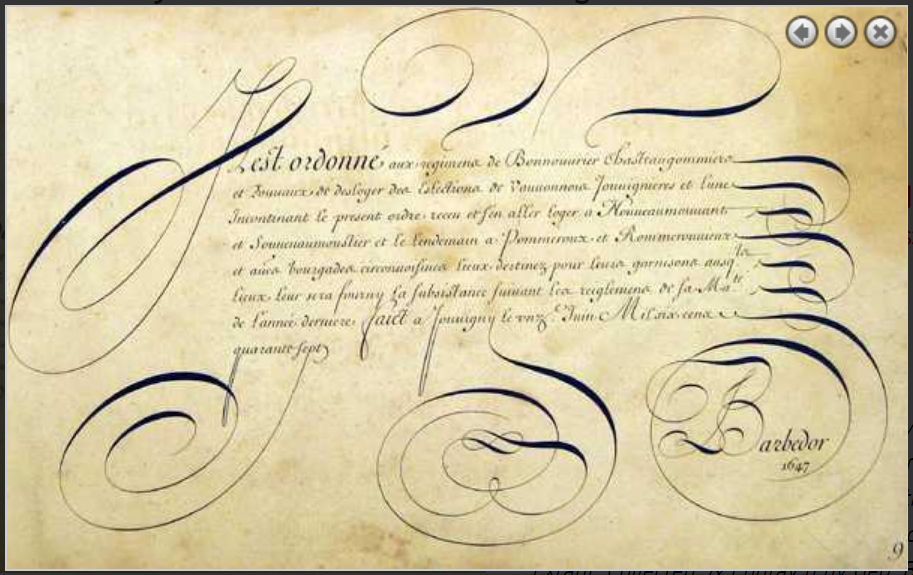 Il est ordonné aux regimens de Bonnouurier Chastrangommiers
et Jouuaux, de desloger des Eslections de Vauuonnois Jouuignieres et Lune
Incontinant le present ordre receu et s'en aller loger a Nouueaumouuant
et Souuenaumoustier et le lendemain a Pommeroux et Rommerouuieux
et aues bourgades circonuoisines lieux destinez pour leurs garnisons ausq.ls
lieux leur sera fourny la subsistance suiuant les reiglemens de sa Ma.té
de l'année derniere, faict a Jouuigny le vnz.e Juin Mil six cens
quarante sept
Barbedor
1647
9